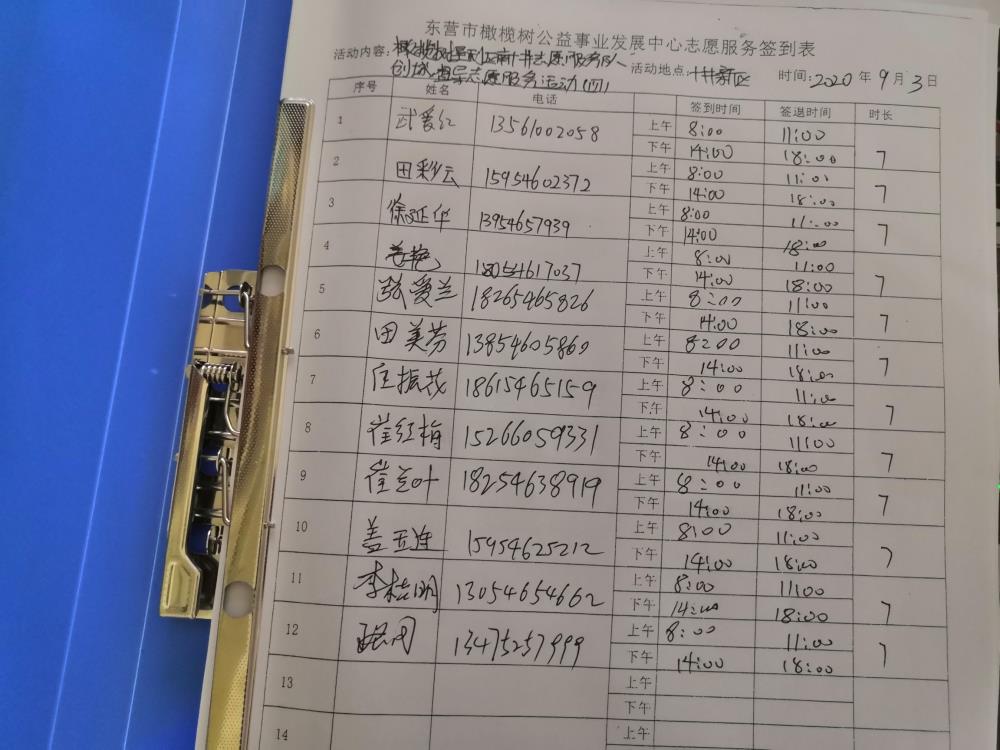 东营市橄榄树公益事业发展中心志愿服务签到表
活动内容: 志愿服务 活动地点: 新区 时间: 2020 年 9 月 3 日
创城 督导志愿服务活动(四)
序号 姓名 电话 签到时间 签退时间 时长
1 武爱红 13561002058 上午 8:00 11:00 7
下午 14:00 18:00
2 田彩云 15954602372 上午 8:00 11:00 7
下午 14:00 18:00
3 徐延华 13954657939 上午 8:00 11:00 7
下午 14:00 18:00
4 18054617037 上午 8:00 11:00 7
下午 14:00 18:00
5 张爱兰 18265465826 上午 8:00 11:00 7
下午 14:00 18:00
6 田美芬 13854605860 上午 8:00 11:00 7
下午 14:00 18:00
7 任振茂 18615465159 上午 8:00 11:00 7
下午 14:00 18:00
8 崔红梅 15266059331 上午 8:00 11:00 7
下午 14:00 18:00
9 崔兰叶 18254638919 上午 8:00 11:00 7
下午 14:00 18:00
10 盖玉连 15954625212 上午 8:00 11:00 7
下午 14:00 18:00
11 李桂明 13054654662 上午 8:00 11:00 7
下午 14:00 18:00
12 13475257999 上午 8:00 11:00 7
下午 14:00 18:00
13 上午
下午
14 上午